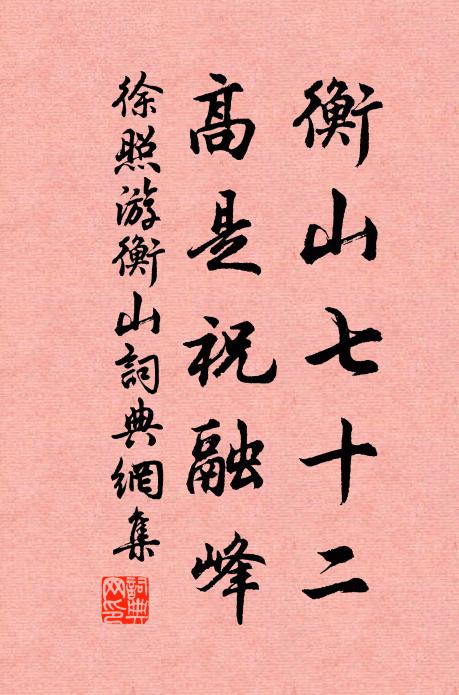 衡山七十二
高是祝融峰
徐照游衡山詞典網集
詞典网印